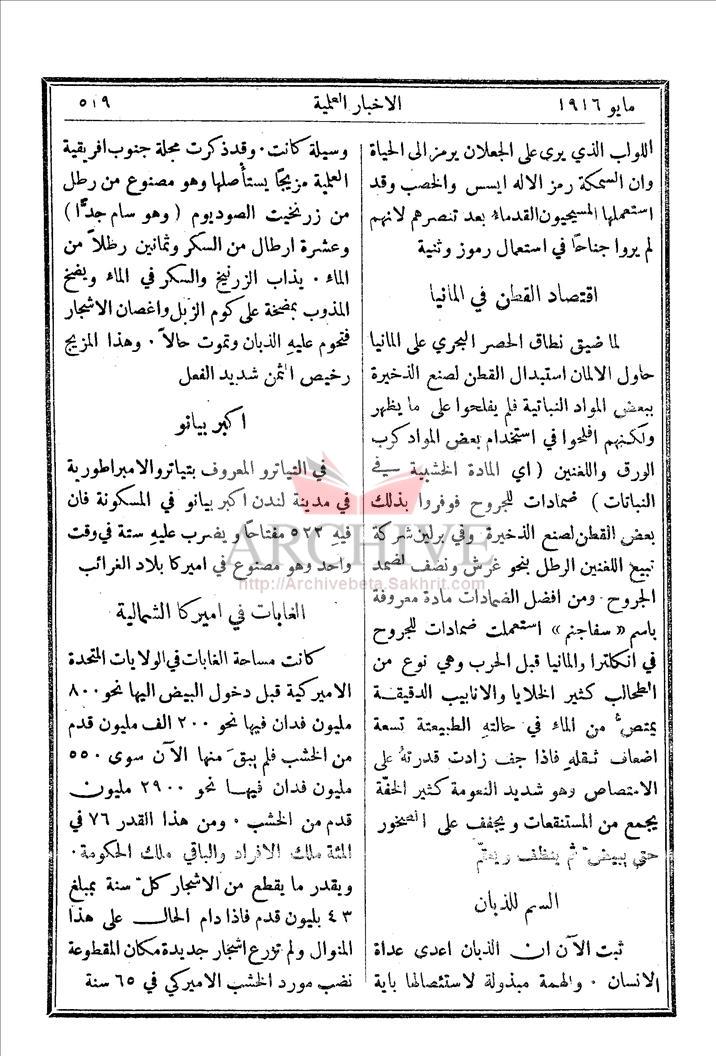 مايو ١٩١٦
الاخبار العلمية
٥١٩
اللواب الذي يرى على الجعلان يرمز الى الحياة
وان السمكة رمز الاله ايسس والخصب وقد
استعملها المسيحيون القدماء بعد تنصرهم لانهم
لم يروا جناحًا في استعمال رموز وثنية
اقتصاد القطن في المانيا
لما ضيق نطاق الحصر البحري على المانيا
حاول الالمان استبدال القطن لصنع الذخيرة
ببعض المواد النباتية فلم يفلحوا على ما يظهر
ولكنهم افلحوا في استخدام بعض المواد كرب
الورق واللغنين (اي المادة الخشبية في
النباتات) ضمادات للجروح فوفروا بذلك
بعض القطن لصنع الذخيرة وفي برلين شركة
تبيع اللغنين الرطل بنحو غرش ونصف لضمد
الجروح . ومن افضل الضمادات مادة معروفة
باسم «سفاجنم» استعملت ضمادات للجروح
في انكلترا والمانيا قبل الحرب وهي نوع من
الطحالب كثير الخلايا والانابيب الدقيقة
يمتصُّ من الماء في حالته الطبيعتة تسعة
اضعاف ثقله فاذا جف زادت قدرتهُ على
الامتصاص وهو شديد النعومة كثير الخفّة
يجمع من المستنقعات ويجفف على الصخور
حتى يبيضّ ثم ينظف ويعقّم
السم للذبان
ثبت الآن ان الذبان اعدى عداة
الانسان . والهمة مبذولة لاستئصالها باية
وسيلة كانت . وقد ذكرت مجلة جنوب افريقية
العلمية مزيجًا يستأصلها وهو مصنوع من رطل
من زرنخيت الصوديوم (وهو سام جدًّا)
وعشرة ارطال من السكر وثمانين رطلاً من
الماء . يذاب الزرنيخ والسكر في الماء ويضخ
المذوب بمضخة على كوم الزبل واغصان الاشجار
فتحوم عليهِ الذبان وتموت حالاً . وهذا المزيج
رخيص الثمن شديد الفعل
اكبر بيانو
في التياترو المعروف بتياترو الامبراطورية
في مدينة لندن اكبر بيانو في المسكونة فان
فيهِ ٥٢٢ مفتاحًا ويضرب عليهِ ستة في وقت
واحد وهو مصنوع في اميركا بلاد الغرائب
الغابات في اميركا الشمالية
كانت مساحة الغابات في الولايات المتحدة
الاميركية قبل دخول البيض اليها نحو ٨٠٠
مليون فدان فيها نحو ٢٠٠ الف مليون قدم
من الخشب فلم يبقَ منها الآن سوى ٥٥٠
مليون فدان فيها نحو ٢٩٠٠ مليون
قدم من الخشب . ومن هذا القدر ٧٦ في
المئة ملك الافراد والباقي ملك الحكومة .
ويقدر ما يقطع من الاشجار كلّ سنة بمبلغ
٤٣ بليون قدم فاذا دام الحال على هذا
المنوال ولم تزرع اشجار جديدة مكان المقطوعة
نضب مورد الخشب الاميركي في ٦٥ سنة
ARCHIVE
http://Archivebeta.Sakhrit.com